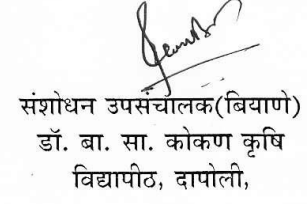 संशोधन उपसंचालक(बियाणे)
डॉ. बा. सा. कोकण कृषि
विद्यापीठ, दापोली,